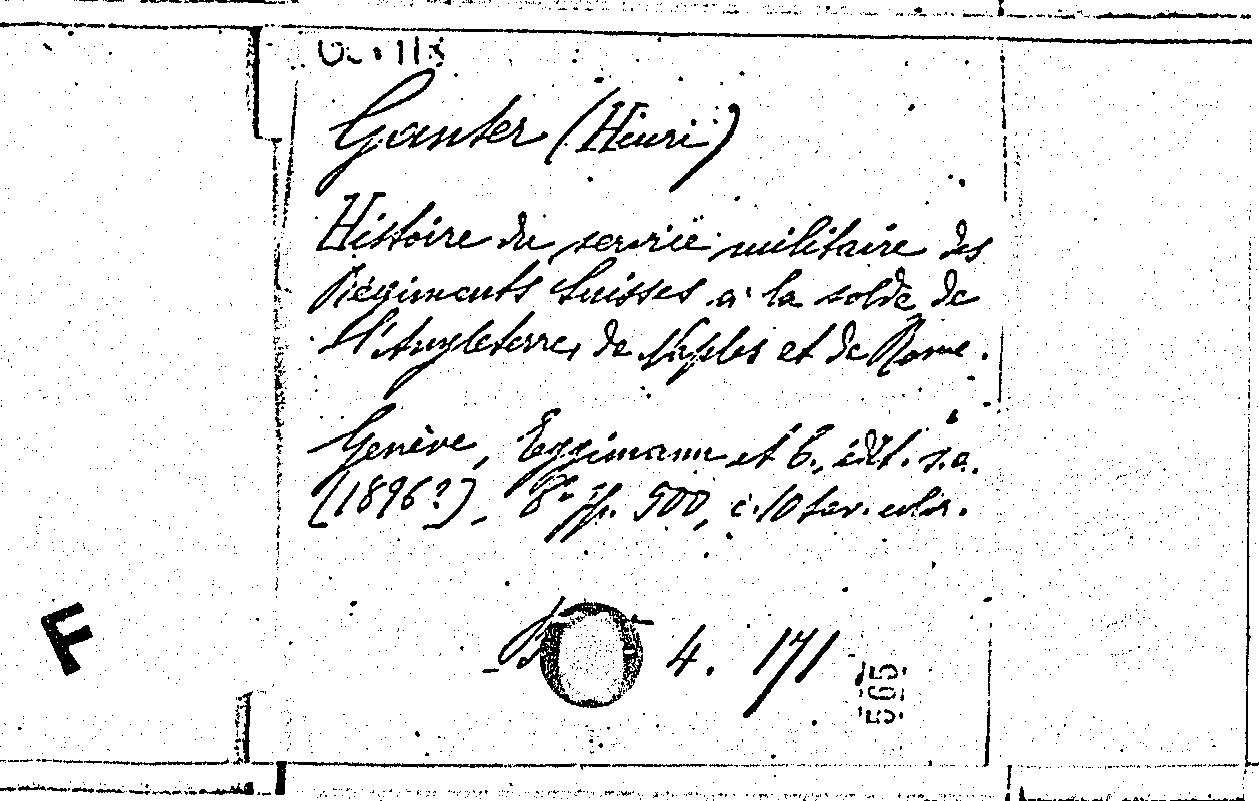 Ganter (Henri)
Histoire du service militaire des
Régiments Suisses à la solde de
l'Angleterre, de Naples et de Rome.
Genève, Eggimann et C., édit. s.a.
[1896?] - 8° pp. 500, c. 10 tav. color.
4. 171
565
F